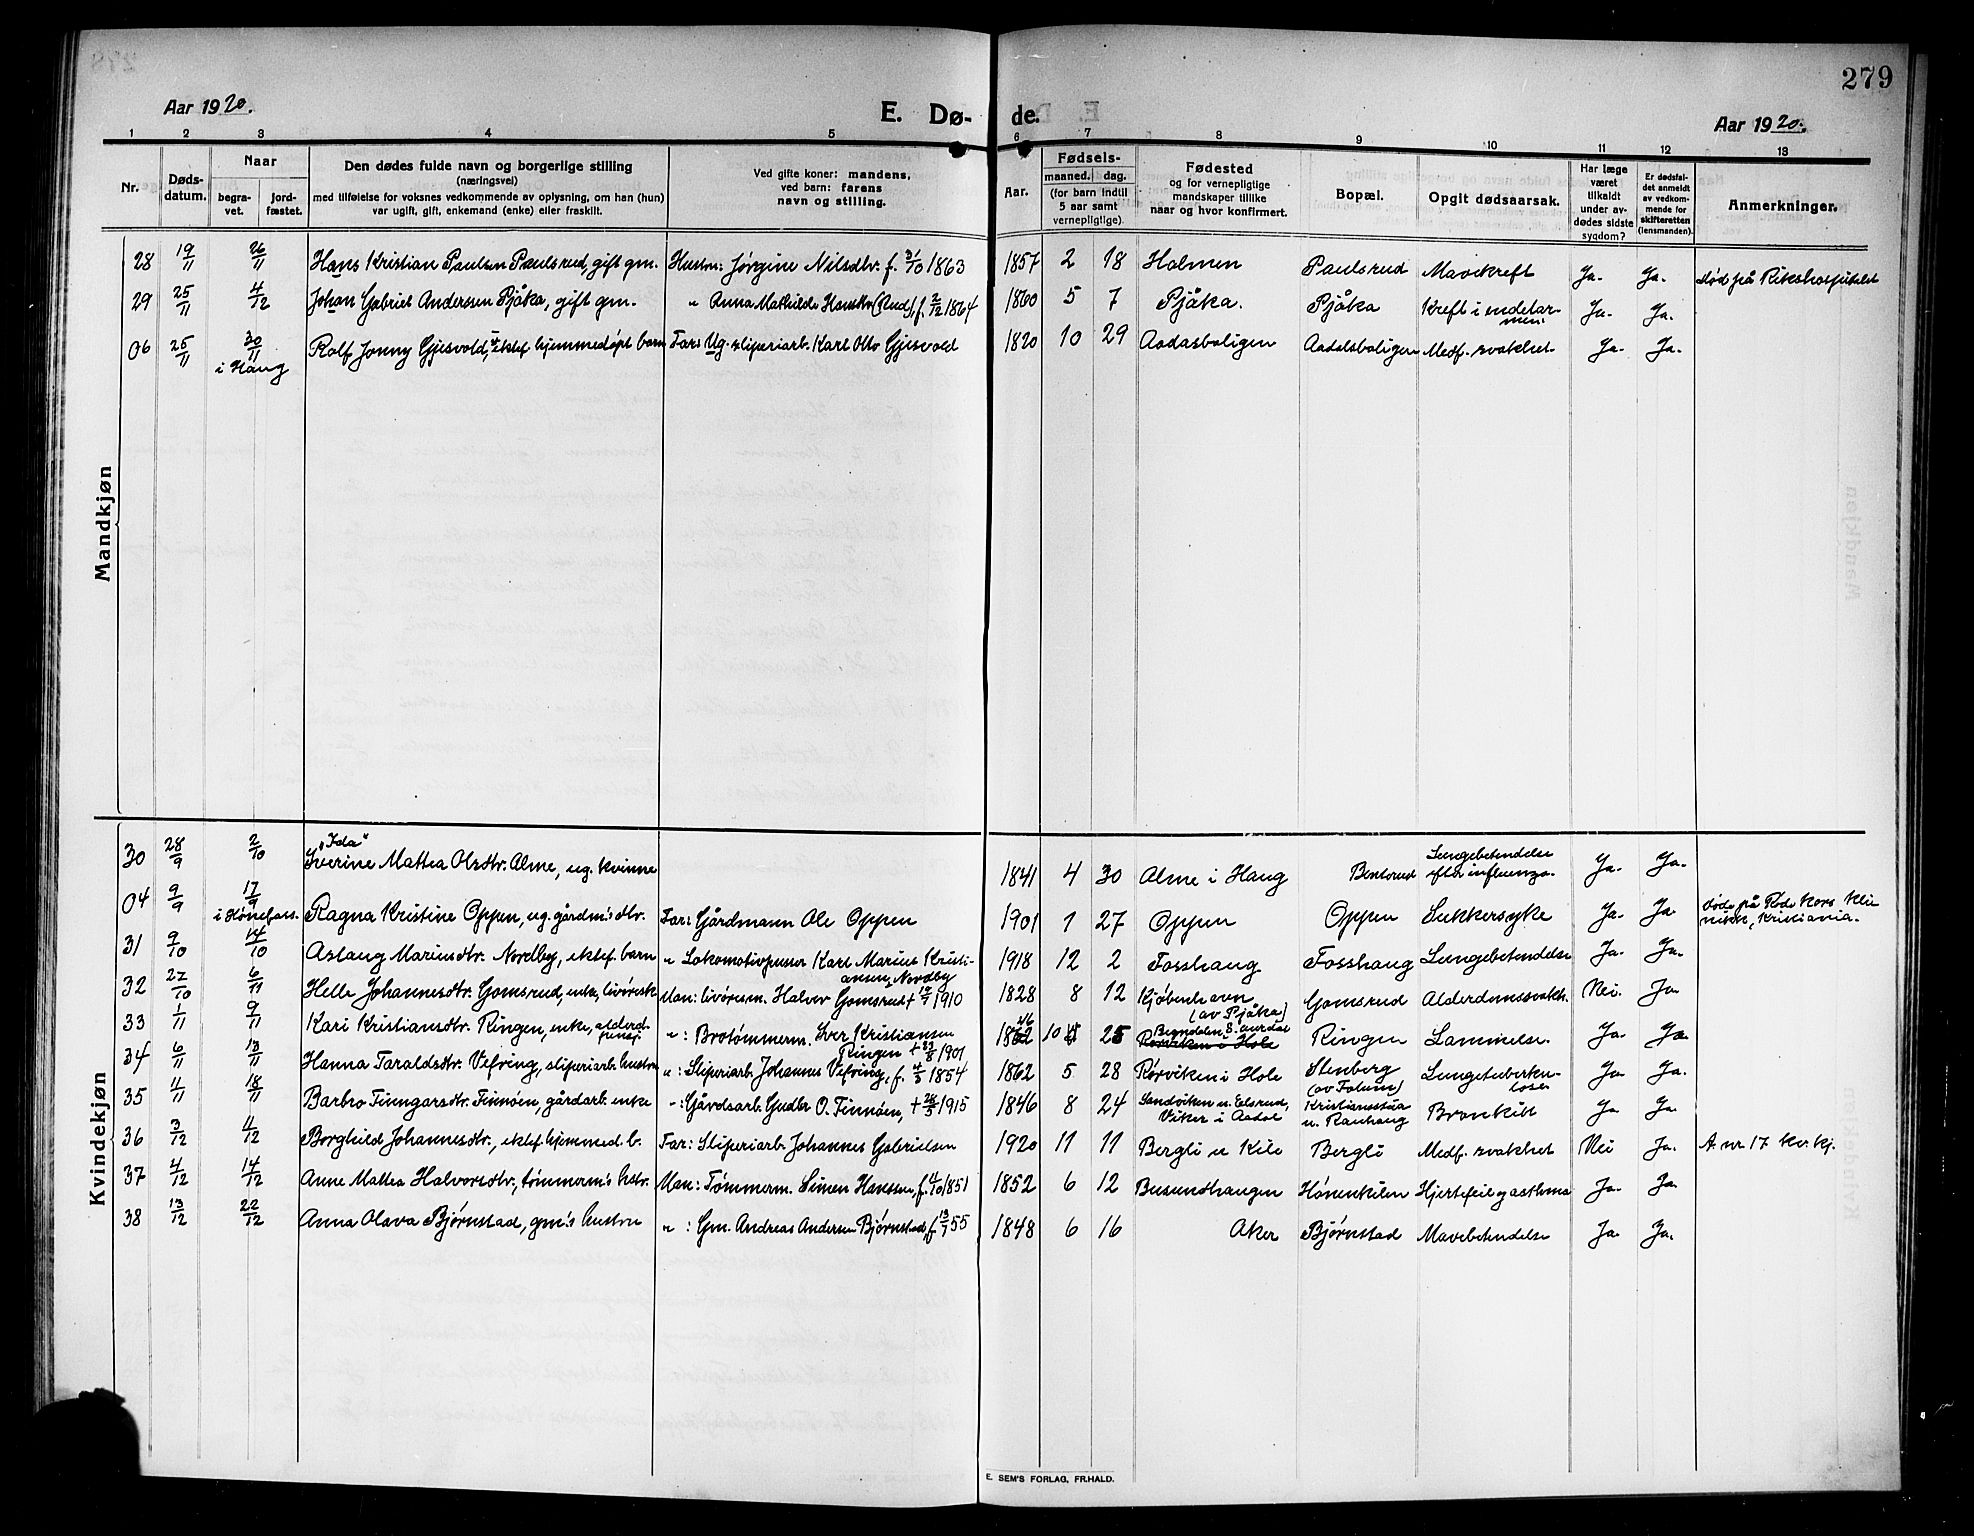 279
Aar 1920.
E. Dø- de.
Aar 1920.
1 2 3 4 5 6 7 8 9 10 11 12 13
Nr. Døds-datum. Naar begra-vet. jord-fæstet. Den dødes fulde navn og borgerlige stilling (næringsvei) med tilføielse for voksnes vedkommende av oplysning, om han (hun) var ugift, gift, enkemand (enke) eller fraskilt. Ved gifte koner: mandens, ved barn: farens navn og stilling. Aar. Fødsels- maaned. dag. (for barn indtil 5 aar samt vernepligtige). Fødested og for vernepligtige mandskaper tillike naar og hvor konfirmert. Bopæl. Opgit dødsaarsak. Har læge været tilkaldt under av-dødes sidste sygdom? Er dødsfal-det anmeldt av vedkom-mende for skifteretten (lensmanden). Anmerkninger.
Mandkjøn
28 19/11 26/11 Hans Kristian Paulsen Paulsrud, gift gm. Hustru: Jørgine Nilsdtr. f. 31/10 1863 1857 2 18 Holmen Paulsrud Mavekreft Ja. Ja. Død på Rikshospitalet
29 25/11 4/12 Johan Gabriel Andersen Pjåka, gift gm. " Anna Mathilde Hansdtr (Rud), f. 2/12 1864 1860 5 7 Pjåka. Pjåka Kreft i endetar-men. Ja. Ja.
06 25/11 30/11 i Haug Rolf Jonny Gjesvold, ektef. hjemmedøpt barn Far: Ug. sliperiarb. Karl Otto Gjesvold 1820 10 29 Aadasboligen Aadalsboligen Medf. svakhet Ja. Ja.
Kvindekjøn
30 28/9 2/10 "Ida" Iverine Mattea Olsdtr. Alme, ug. kvinne 1841 4 30 Alme i Haug Bentsrud Lungebetendelse efter influenza. Ja. Ja.
04 9/9 17/9 i Hønefoss. Ragna Kristine Oppen, ug. gårdm's dtr. Far: Gårdmann Ole Oppen 1901 1 27 Oppen Oppen Sukkersyke Ja. Ja Død på Røde Kors Kli-nikk, Kristiania.
31 9/10 14/10 Aslaug Mariusdtr. Nordby, ektef. barn " Lokomotivpusser Karl Marius Kristi-ansen Nordby 1918 12 2 Fosshaug Fosshaug Lungebetendelse Ja. Ja.
32 27/10 6/11 Helle Johannesdtr. Gomsrud, enke, livøresk Man: livøresm. Halvor Gomsrud † 19/7 1910 1828 8 12 Kjøbenhavn (av Pjåka) Gomsrud Alderdomssvakh. Nei. Ja
33 1/11 9/11 Kari Kristiansdtr. Ringen, enke, alderd. " : Brotømmerm. Iver Kristiansen Ringen † 23/8 1901 10 25 Begndalen S. Aurdal Rørviken i Hole Ringen Lammelse. Ja. Ja
34 6/11 13/11 Hanna Taraldsdtr. Vefring, sliperiarb. hustru " : Sliperiarb. Johannes Vefring, f. 4/3 1854 1862 5 28 Rørviken i Hole Stenberg Lungetuberku-lose. Ja Ja.
35 4/11 18/11 Barbro Finngarsdtr. Finnøen, gårdarb. enke " : Gårdsarb. Gudbr. O. Finnøen, † 28/5 1915 1846 8 24 Sandviken u. Elsrud, Viker i Aadal Kristiansstua u. Ranhaug Bronkitt Ja Ja.
36 3/12 4/12 Borghild Johannesdtr., ektef. hjemmed. b. Far: Sliperiarb. Johannes Gabrielsen 1920 11 11 Bergli u Kile Bergli Medf. svakhet Nei Ja. A nr. 17 kv. kj.
37 4/12 14/12 Anne Mattea Halvorsdtr., tømmerm's hstr. Man: Tømmerm. Simen Hanssen, f. 4/10 1851 1852 6 12 Busundhaugen Hønenkilen Hjertefeil og asthma Ja. Ja
38 13/12 22/12 Anna Olava Bjørnstad, gm's hustru " : Gm. Andreas Andersen Bjørnstad, f 13/7 55 1848 6 16 Aker Bjørnstad Mavebetendelse Ja. Ja.
E. SEM'S FORLAG, FR.HALD.